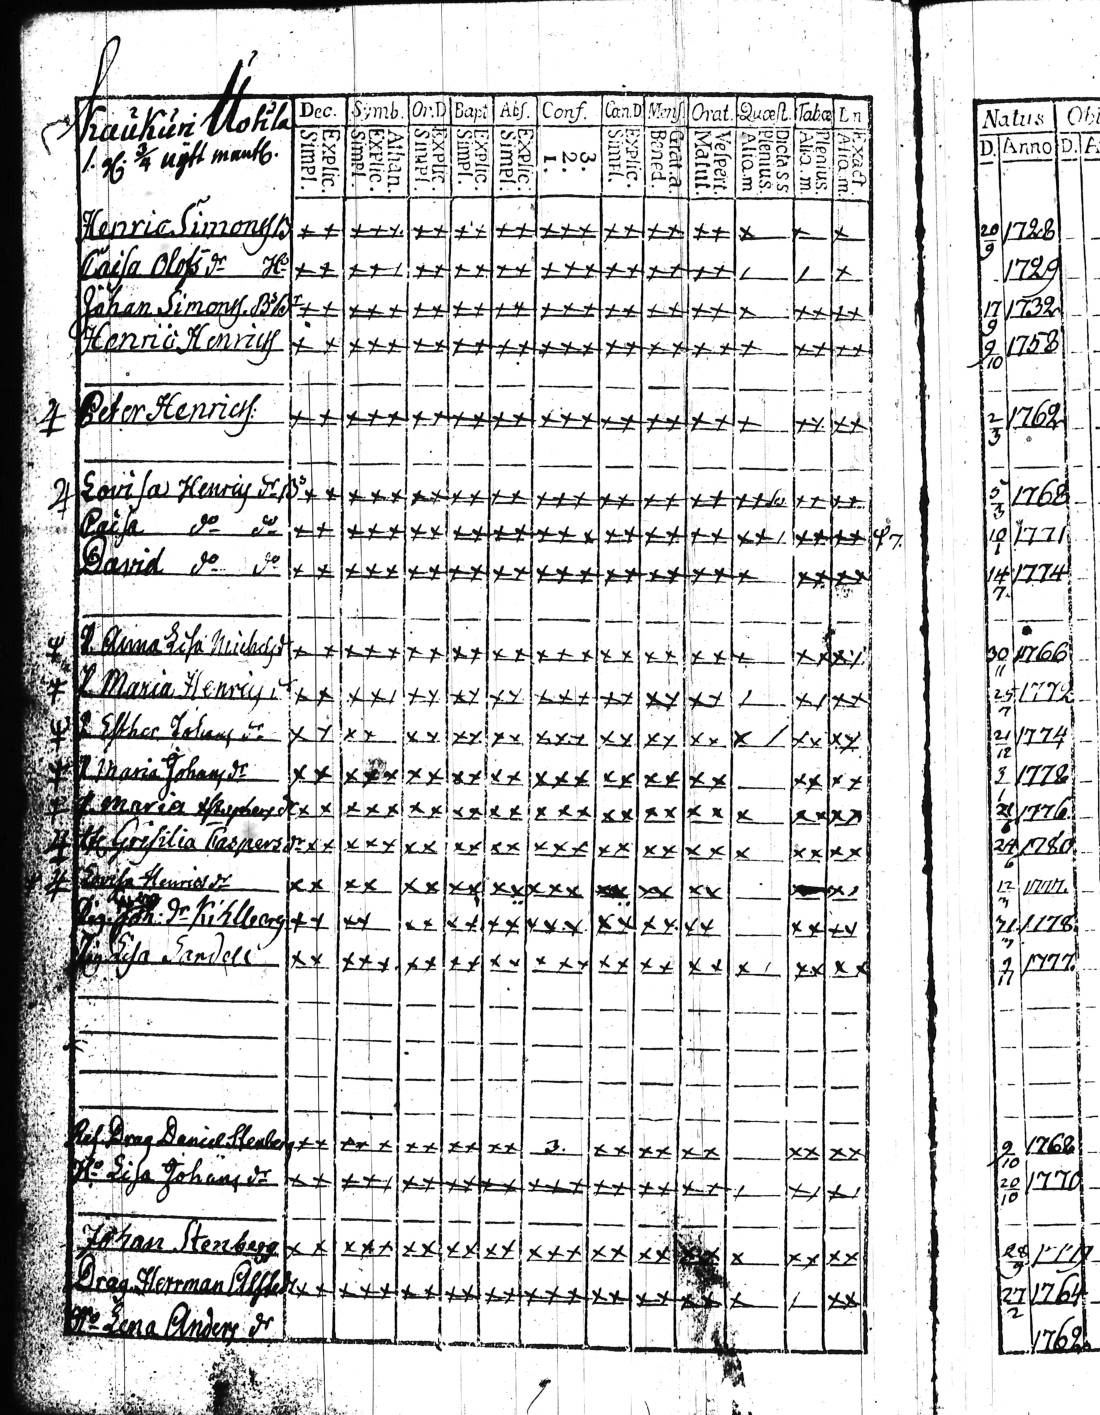 Kaukuri Uotila
1. 3/4 nÿtt mantl.
Dec. Symb. Or.D Bapt Abs. Conf. Can.D Mens. Orat. Quæst. Tabæ Ln
Simpl. Explic. Simpl. Explic. Athan. Simpl. Explic. Simpl. Explic. Simpl. Explic. 1. 2. 3. Simpl. Explic. Bened. Grat.a Matut. Vespert. Aliq.m Plenius. Dicta S.S Aliq.m Plenius. Aliq.m. Exact
Natus Obi
D. Anno D. A
Henric Simons B 20/9 1728
Caisa Olofs dr H 1729
Johan Simons. Br 17/9 1732
Henric Henrics 9/10 1758
Peter Henrics. 2/3 1762
Lovisa Henrics dr 5/3 1768
Caisa do do 10/1 1771
David do do 14/7 1774
P. Anna Lisa Michels dr 30/11 1766
P Maria Henrics dr 25/7 1772
P Esther Johans dr 21/12 1774
P Maria Johans dr 3/1 1778
P Maria dr 28/6 1776
Gresilia Caspers dr 24/6 1780
Lovisa Henrics dr 12/3 1777
Pig. Joh. dr Kihlberg 31/3 1778
Lisa Sandell 9/11 1777
Ref. Drag Daniel Stenberg 3. 9/10 1768
Ho Lisa Johans dr 20/10 1770
Johan Stenberg 28/9
Drag. Herrman 27/2 1764
Ho Lena Anders dr 1762